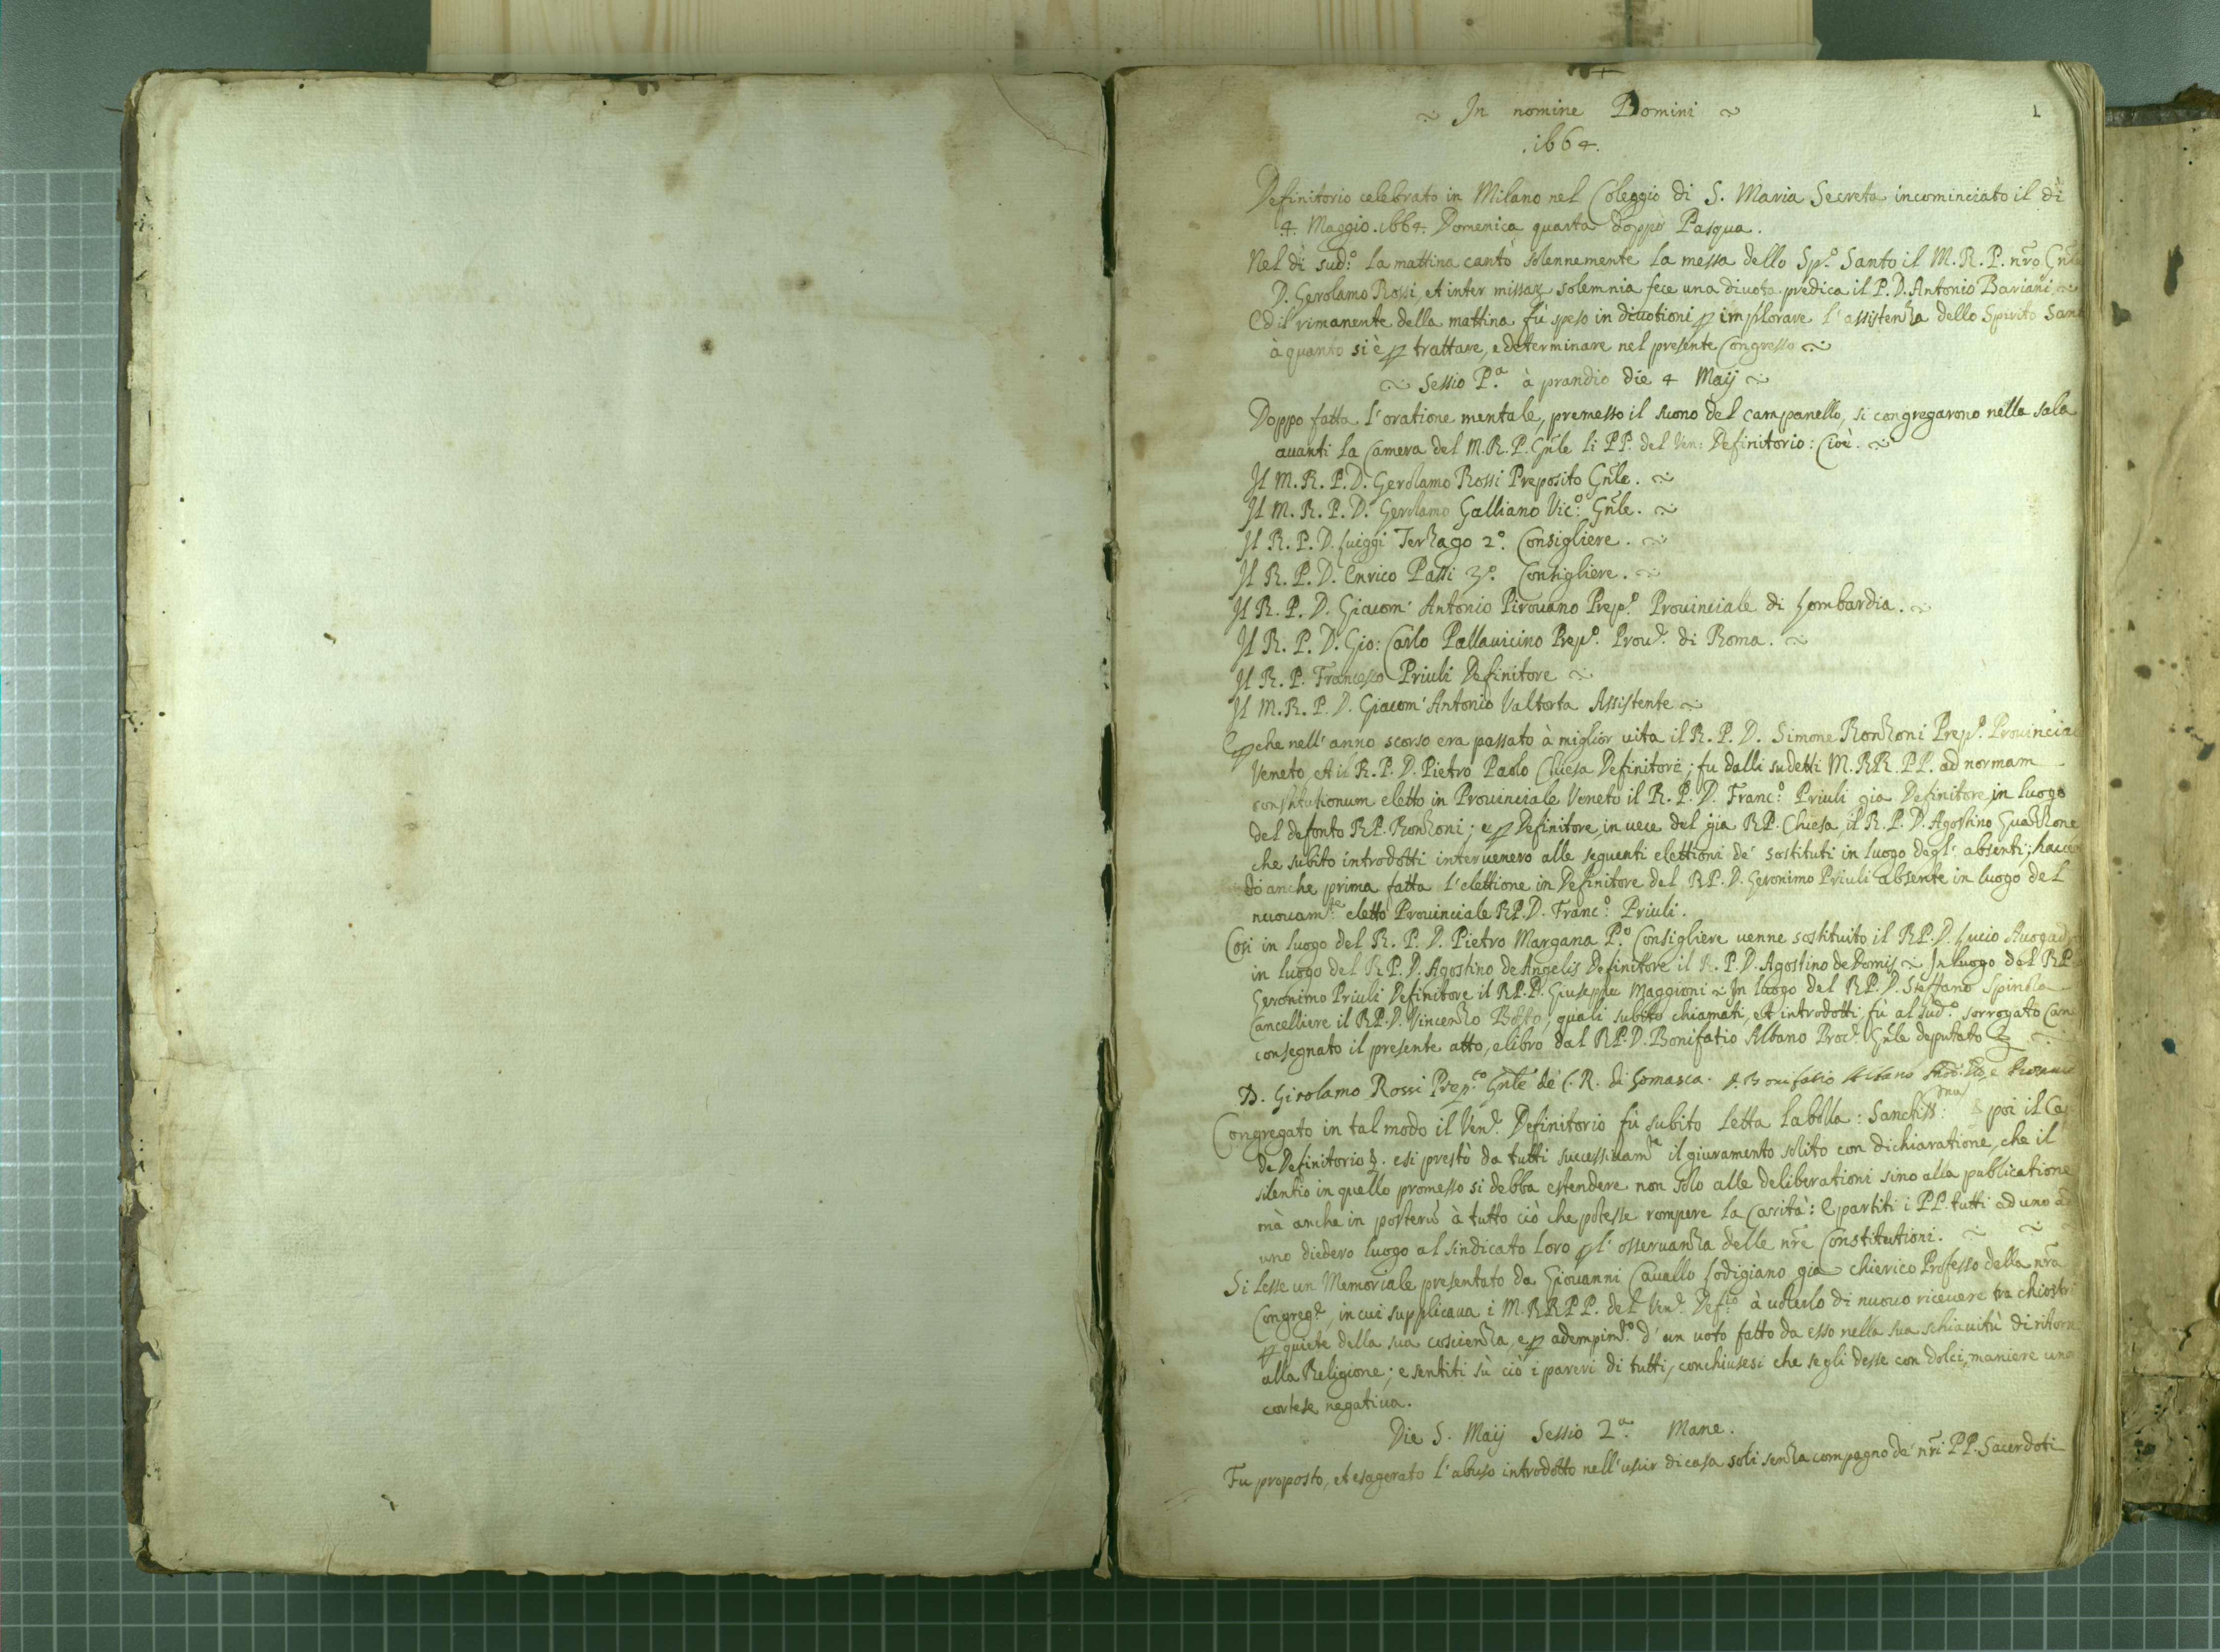 1
In nomine Domini
.1664.
Definitorio celebrato in Milano nel Coleggio di S. Maria Secreta incominciato il dì
4. Maggio .1664. Domenica quarta doppò Pasqua.
Nel dì sud.º la mattina cantò solennemente la messa dello Sp.º Santo il M. R. P. nr̃o Gñle
D. Gerolamo Rossi, et inter missaz solemnia fece una divota predica il P. D. Antonio Bariani
Ed il rimanente della mattina fù speso in divotioni ꝑ implorare l'assistenza dello Spirito Sant
à quanto si è ꝑ trattare, e determinare nel presente Congresso
Sessio P.ª à prandio die 4 Maij
Doppo fatta l'oratione mentale, premesso il suono del campanello, si congregarono nella sala
avanti la Camera del M. R. P. Gñle li PP. del Ven: Definitorio: Cioè.
Il M. R. P. D. Gerolamo Rossi Preposito Gñle.
Il M. R. P. D. Gerolamo Galliano Vic.º Gñle.
Il R. P. D. Luiggi Terzago 2.º Consigliere.
Il R. P. D. Enrico Passi 3.º Consigliere.
Il R. P. D. Giacom' Antonio Pirovano Prep.º Provinciale di Lombardia.
Il R. P. D. Gio: Carlo Pallavicino Prep.º Prov.e di Roma.
Il R. P. Francesco Priuli Definitore
Il M. R. P. D. Giacom' Antonio Valtorta Assistente
E ꝑche nell'anno scorso era passato à miglior vita il R. P. D. Simone Ronzoni Prep.º Provincial
Veneto, et il R. P. D. Pietro Paolo Chiesa Definitore; fu dalli sudetti M. RR. PP. ad normam
constitutionum eletto in Provinciale Veneto il R. P. D. Franc.º Priuli gia Definitore in luogo
del defonto RP. Ronzoni; e ꝑ Definitore in vece del gia RP. Chiesa il R. P. D. Agostino Guazzone
che subito introdotti intervenero alle seguenti elettioni de' sostituti in luogo degl' absenti; haven
do anche prima fatta l'elettione in Definitore del RP. D. Geronimo Priuli absente in luogo del
nuovam.te eletto Provinciale RP. D. Franc.º Priuli.
Cosi in luogo del R. P. D. Pietro Margana P.º Consigliere venne sostituito il RP. D. Lucio Avogad
in luogo del RP. D. Agostino de Angelis Definitore il R. P. D. Agostino de Domis In luogo del RP
Geronimo Priuli Definitore il RP. D. Giuseppe Maggioni In luogo del RP. D. Steffano Spinola
Cancelliere il RP. D. Vincenzo Botto; quali subito chiamati, et introdotti, fù al sud.º sorrogato Can
consegnato il presente atto, e libro dal RP. D. Bonifatio Albano Proc.e Gñle deputato
D. Girolamo Rossi Prep.to Gñle de' C. R. di Somasca. D. Bonifatio Albano
Congregato in tal modo il Ven.e Definitorio fù subito letta la bolla: Sanctiss: poi il Cap
de Definitorio &. e si prestò da tutti successivam.te il giuramento solito con dichiaratione, che il
silentio in quello promesso si debba estendere non solo alle deliberationi sino alla publicatione
mà anche in posterũ à tutto ciò che potesse rompere la Carità: E partiti i PP. tutti ad uno ad
uno diedero luogo al sindicato loro ꝑ l'osservanza delle nr̃e Constitutioni.
Si lesse un Memoriale presentato da Giovanni Cavallo Lodigiano gia chierico Professo della nr̃a
Congreg.e, in cui supplicava i M. RR PP. del Ven.e Def.rio à volerlo di nuovo ricevere tra chiostri
ꝑ quiete della sua coscienza, e ꝑ adempim.to d'un voto fatto da esso nella sua schiavitù di ritorn
alla Religione; e sentiti sù ciò i pareri di tutti, conchiusesi che se gli desse con dolci maniere una
cortese negativa.
Die 5. Maij Sessio 2.ª Mane.
Fu proposto, et esagerato l'abuso introdotto nell'uscir di casa soli senza compagno de' nr̃i PP. Sacerdoti